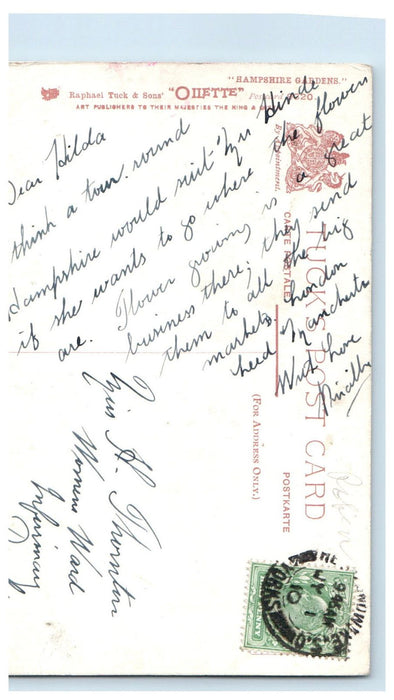 "HAMPSHIRE GARDENS."
Raphael Tuck & Sons' "OILETTE" Postcard
ART PUBLISHERS TO THEIR MAJESTIES THE KING &
By Appointment.
TUCK'S POST CARD
CARTE POSTALE
POSTKARTE
(FOR ADDRESS ONLY.)
Dear Hilda
think a tour round
Hampshire would suit Mrs Hinde
if she wants to go where the flowers
are. Flower growing is a great
business there; they send
them to all the big
markets. London
Leed Manchester
With love
Miss H. Thornton
Womens Ward
Infirmary
PENNY